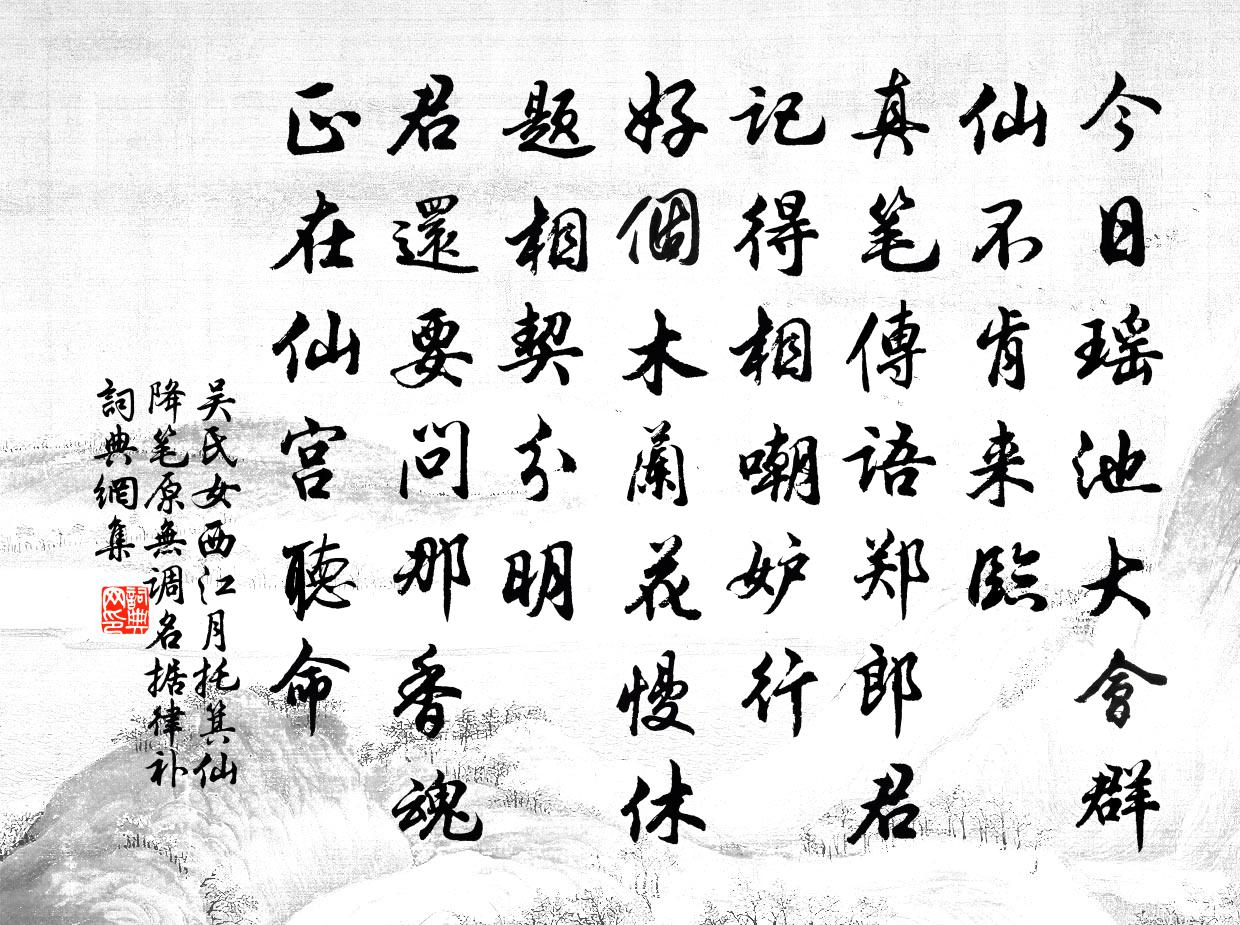 今日瑶池大會群
仙不肯来臨
真笔傳語郑郎君
記得相嘲妒行
好個木蘭花慢休
題相契分明
君還要問那香魂
正在仙宫聽命
吴氏女西江月托箕仙
降笔原無调名据律补
詞典網集
詞典网印